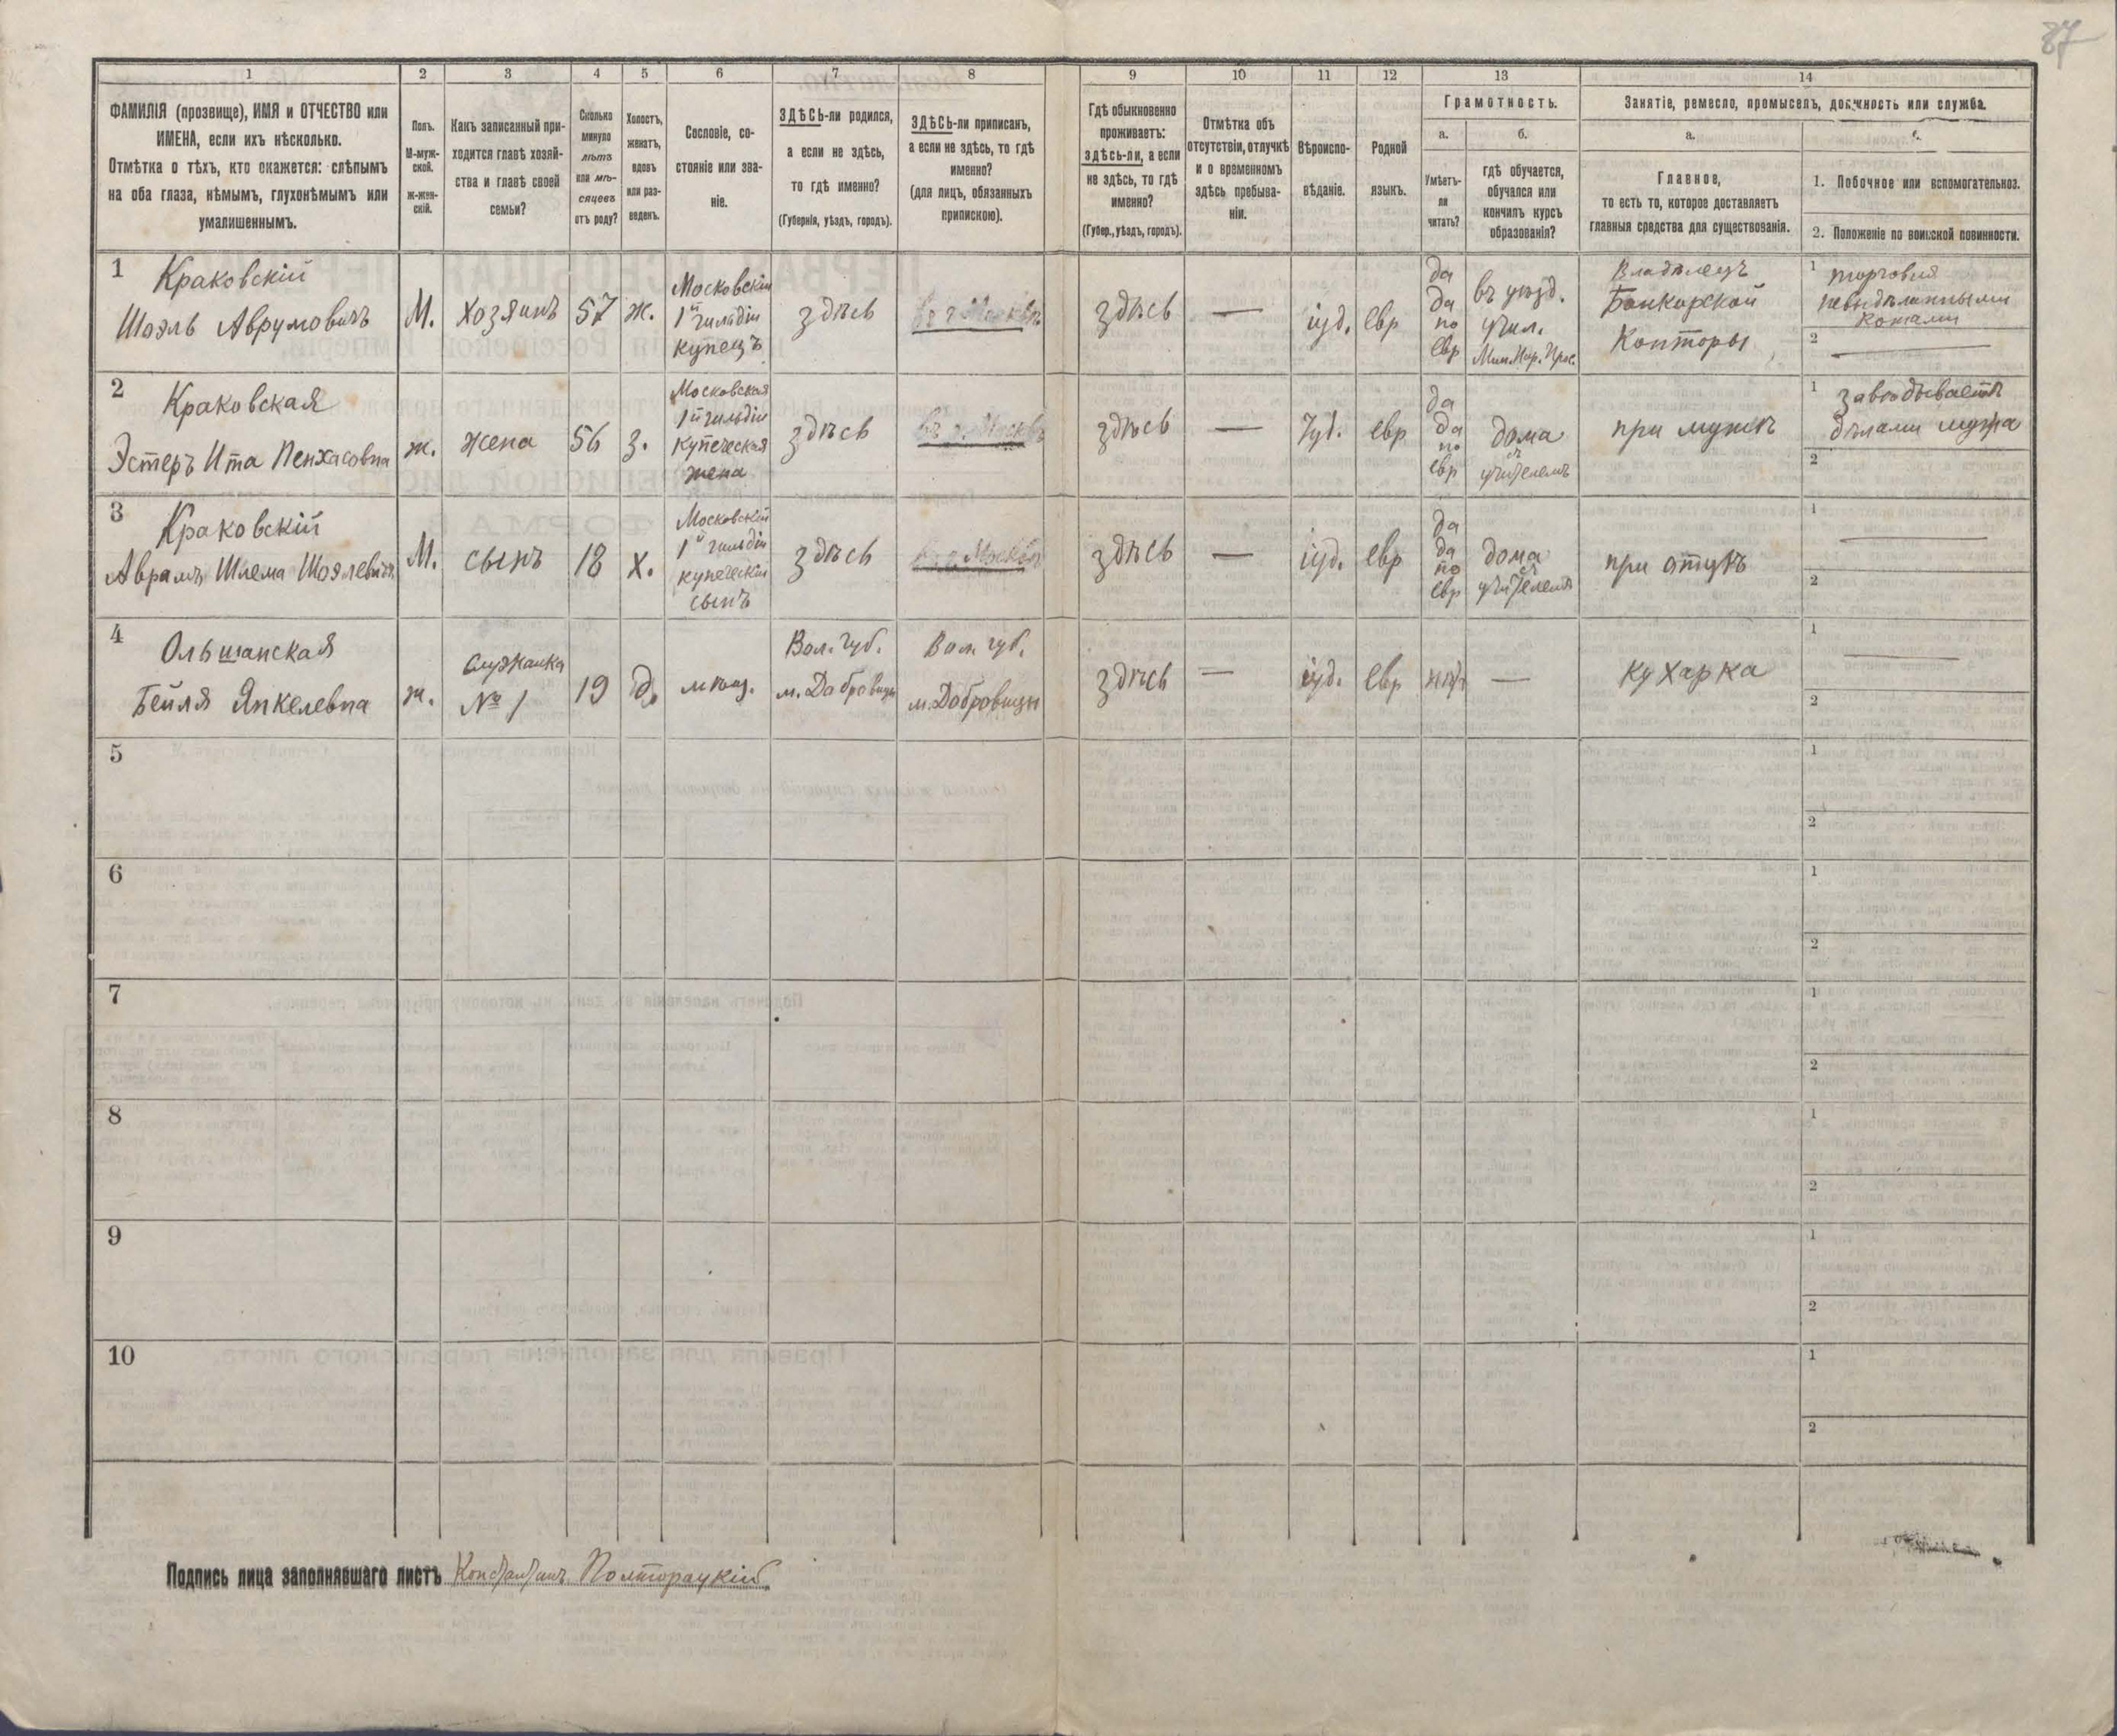 87
1 2 3 4 5 6 7 8 9 10 11 12 13 14
ФАМИЛІЯ (прозвище), ИМЯ и ОТЧЕСТВО или
ИМЕНА, если ихъ нѣсколько.
Отмѣтка о тѣхъ, кто окажется: слѣпымъ
на оба глаза, нѣмымъ, глухонѣмымъ или
умалишеннымъ.
Полъ.
М-муж-
ской.
Ж-жен-
скій.
Какъ записанный при-
ходится главѣ хозяй-
ства и главѣ своей
семьи?
Сколько
минуло
лѣтъ
или мѣ-
сяцевъ
отъ роду?
Холостъ,
женатъ,
вдовъ
или раз-
веденъ.
Сословіе, со-
стояніе или зва-
ніе.
ЗДѢСЬ-ли родился,
а если не здѣсь,
то гдѣ именно?
(Губернія, уѣздъ, городъ).
ЗДѢСЬ-ли приписанъ,
а если не здѣсь, то гдѣ
именно?
(для лицъ, обязанныхъ
припискою).
Гдѣ обыкновенно
проживаетъ:
здѣсь-ли, а если
не здѣсь, то гдѣ
именно?
(Губер., уѣздъ, городъ).
Отмѣтка объ
отсутствіи, отлучкѣ
и о временномъ
здѣсь пребыва-
ніи.
Вѣроиспо-
вѣданіе.
Родной
языкъ.
Грамотность.
а.
Умѣетъ-
ли
читать?
б.
гдѣ обучается,
обучался или
кончилъ курсъ
образованія?
Занятіе, ремесло, промыселъ, должность или служба.
а.
Главное,
то есть то, которое доставляетъ
главныя средства для существованія.
1. Побочное или вспомогательное.
2. Положеніе по воинской повинности.
1
Краковскій
Шоэль Аврумовичъ
М.
хозяинъ
57
ж.
Московскій
1й гильдіи
купецъ
здѣсь
въ г. Москвѣ
здѣсь
—
іуд.
евр
да
да
по
евр
въ уѣзд.
учил.
Мин. Нар. Прос.
Владѣлецъ
Банкирской
Конторы
1 торговля
невыдѣланными
кожами
2 —
2
Краковская
Эстеръ Ита Пенхасовна
ж.
жена
56
з.
Московская
1й гильдіи
купеческая
жена
здѣсь
въ г. Москвѣ
здѣсь
—
Іуд.
евр
да
да
по
евр
дома
съ
учителемъ
при мужѣ
1 завѣдываетъ
дѣлами мужа
2
3
Краковскій
Аврамъ Шлема Шоэлевичъ
М.
сынъ
18
х.
Московскій
1й гильдіи
купеческій
сынъ
здѣсь
въ г. Москвѣ
здѣсь
—
іуд.
евр
да
да
по
евр
дома
съ
учителемъ
при отцѣ
1 —
2
4
Ольшанская
Бейля Янкелевна
ж.
служанка
№ 1
19
д.
мѣщ.
Вол. губ.
м. Домбровицы
Вол. губ.
м. Домбровицы
здѣсь
—
іуд.
евр
нѣт
—
кухарка
1 —
2
5
1
2
6
1
2
7
1
2
8
1
2
9
1
2
10
1
2
Подпись лица заполнявшаго листъ Константинъ Полторацкій